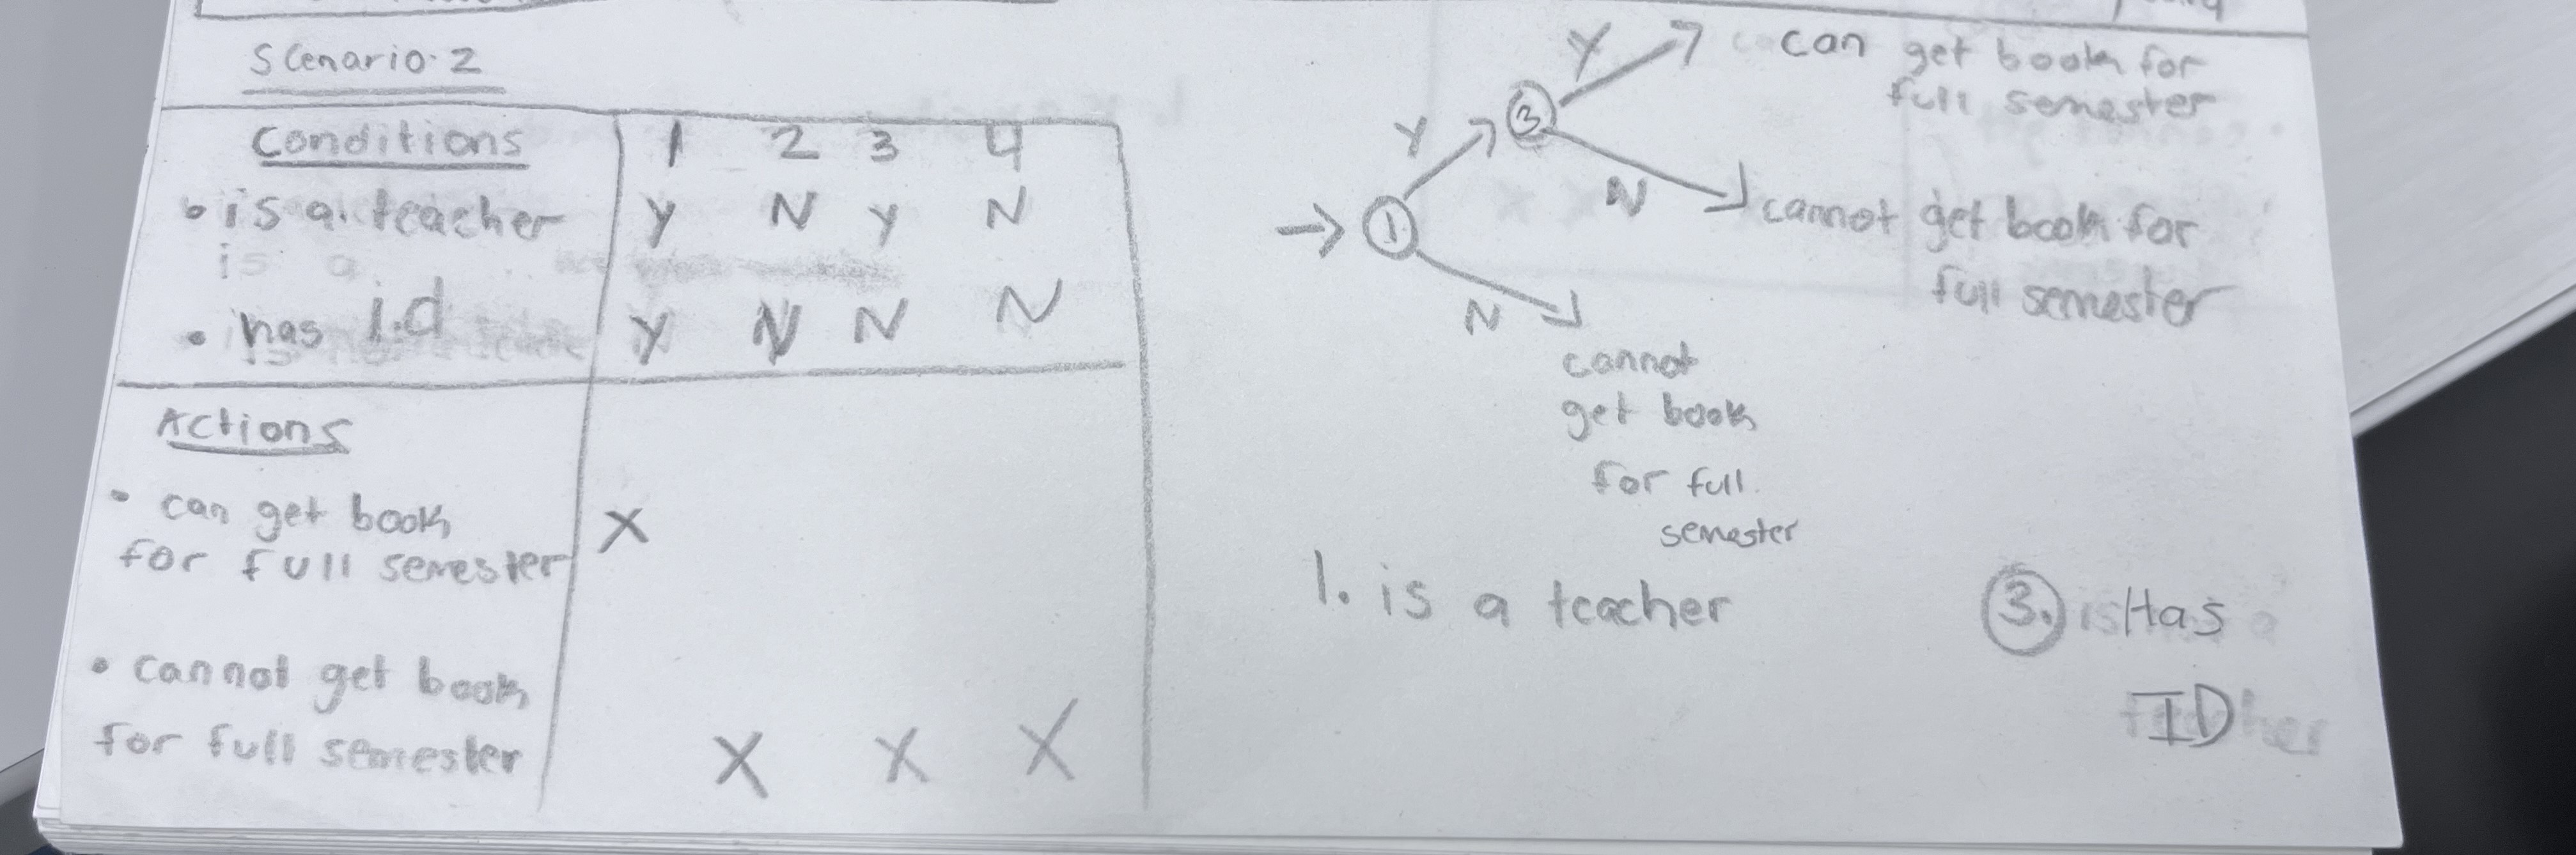 Scenario 2
Conditions 1 2 3 4
• is a teacher Y N Y N
is a
• has i.d Y N N N
Actions
• can get book
for full semester X
• cannot get book
for full semester X X X
Y can get book for
full semester
Y 3
N cannot get book for
full semester
→ 1
N
cannot
get book
for full
semester
1. is a teacher
3. Has
ID